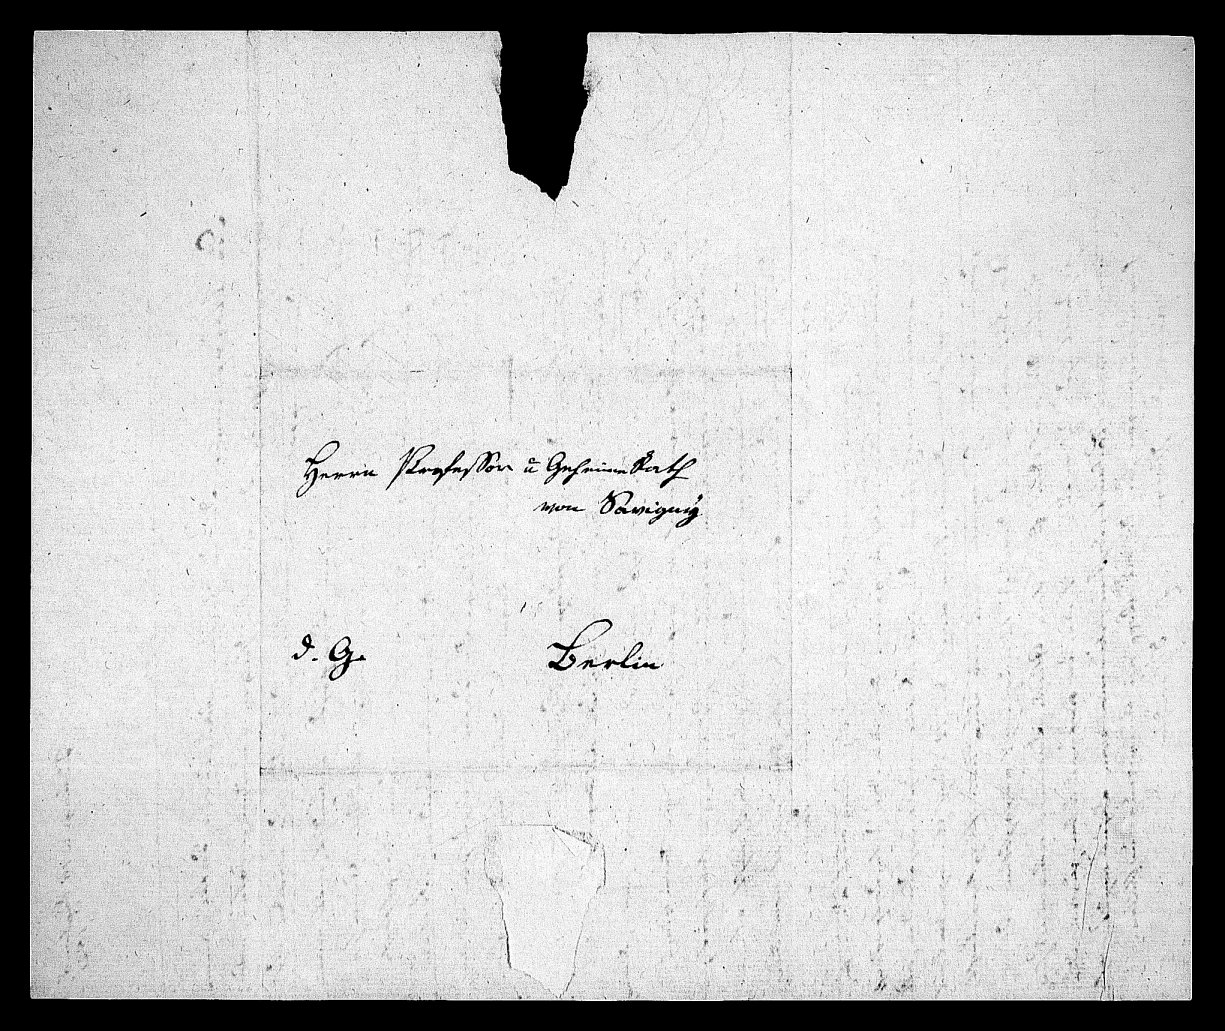 Herrn Professor u Geheimen Rath
von Savigny
d. G.
Berlin